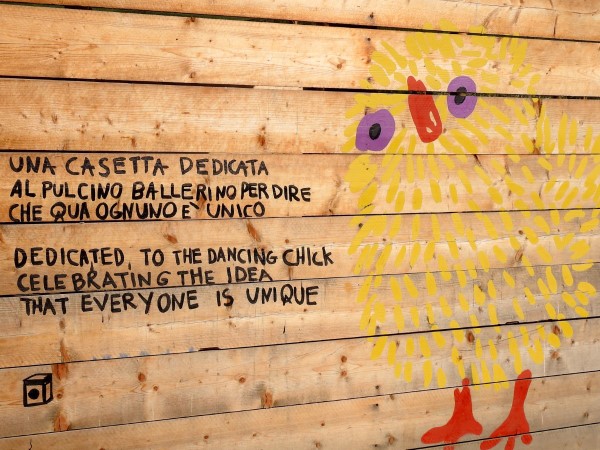 UNA CASETTA DEDICATA
AL PULCINO BALLERINO PER DIRE
CHE QUA OGNUNO E' UNICO
DEDICATED, TO THE DANCING CHICK
CELEBRATING THE IDEA
THAT EVERYONE IS UNIQUE